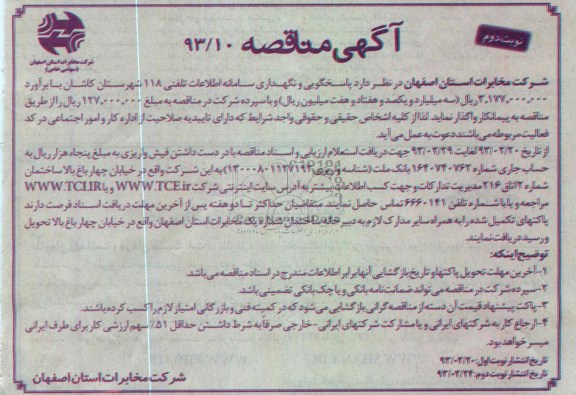 نوبت دوم
آگهی مناقصه ۹۳/۱۰
شرکت مخابرات استان اصفهان
(سهامی خاص)
شرکت مخابرات استان اصفهان در نظر دارد پاسخگویی و نگهداری سامانه اطلاعات تلفنی ۱۱۸ شهرستان کاشان با برآورد
۳,۱۷۷,۰۰۰,۰۰۰ ریال (سه میلیارد و یکصد و هفتاد و هفت میلیون ریال) و با سپرده شرکت در مناقصه به مبلغ ۱۲۷,۰۰۰,۰۰۰ ریال را از طریق
مناقصه به پیمانکار واگذار نماید. لذا از کلیه اشخاص حقیقی و حقوقی واجد شرایط که دارای تاییدیه صلاحیت از اداره کار و امور اجتماعی در کد
فعالیت مربوطه می باشند دعوت به عمل می آید.
از تاریخ ۹۳/۰۲/۲۰ لغایت ۹۳/۰۲/۲۹ جهت دریافت استعلام ارزیابی و اسناد مناقصه با در دست داشتن فیش واریزی به مبلغ پنجاه هزار ریال به
حساب جاری شماره ۱۶۴۰۷۴۰۷۶۲ بانک ملت (شناسه واریز ) به این شرکت واقع در خیابان چهار باغ بالا ساختمان
شماره ۲ اتاق ۲۱۶ مدیریت تدارکات و جهت کسب اطلاعات بیشتر به آدرس سایت اینترنتی شرکت WWW.TCE.ir و یا WWW.TCI.IR
مراجعه و یا با شماره تلفن ۶۶۶۰۱۴۱ تماس حاصل نمایند. متقاضیان حداکثر تا دو هفته پس از آخرین مهلت دریافت اسناد فرصت دارند
پاکتهای تکمیل شده را به همراه سایر مدارک لازم به دبیرخانه ساختمان شماره یک مخابرات استان اصفهان واقع در خیابان چهار باغ بالا تحویل
و رسید دریافت نمایند.
توضیح اینکه:
۱-آخرین مهلت تحویل پاکتها و تاریخ بازگشایی آنها برابر اطلاعات مندرج در اسناد مناقصه می باشد.
۲-سپرده شرکت در مناقصه می تواند ضمانت نامه بانکی و یا چک بانکی تضمینی باشد.
۳-پاکت پیشنهاد قیمت آن دسته از مناقصه گرانی بازگشایی می شود که در کمیته فنی و بازرگانی امتیاز لازم را کسب کرده باشند.
۴-ارجاع کار به شرکتهای ایرانی و یا مشارکت شرکتهای ایرانی - خارجی صرفا به شرط داشتن حداقل ۵۱٪ سهم ارزشی کار برای طرف ایرانی
میسر خواهد بود.
تاریخ انتشار نوبت اول: ۹۳/۰۲/۲۰
تاریخ انتشار نوبت دوم: ۹۳/۰۲/۲۴
شرکت مخابرات استان اصفهان